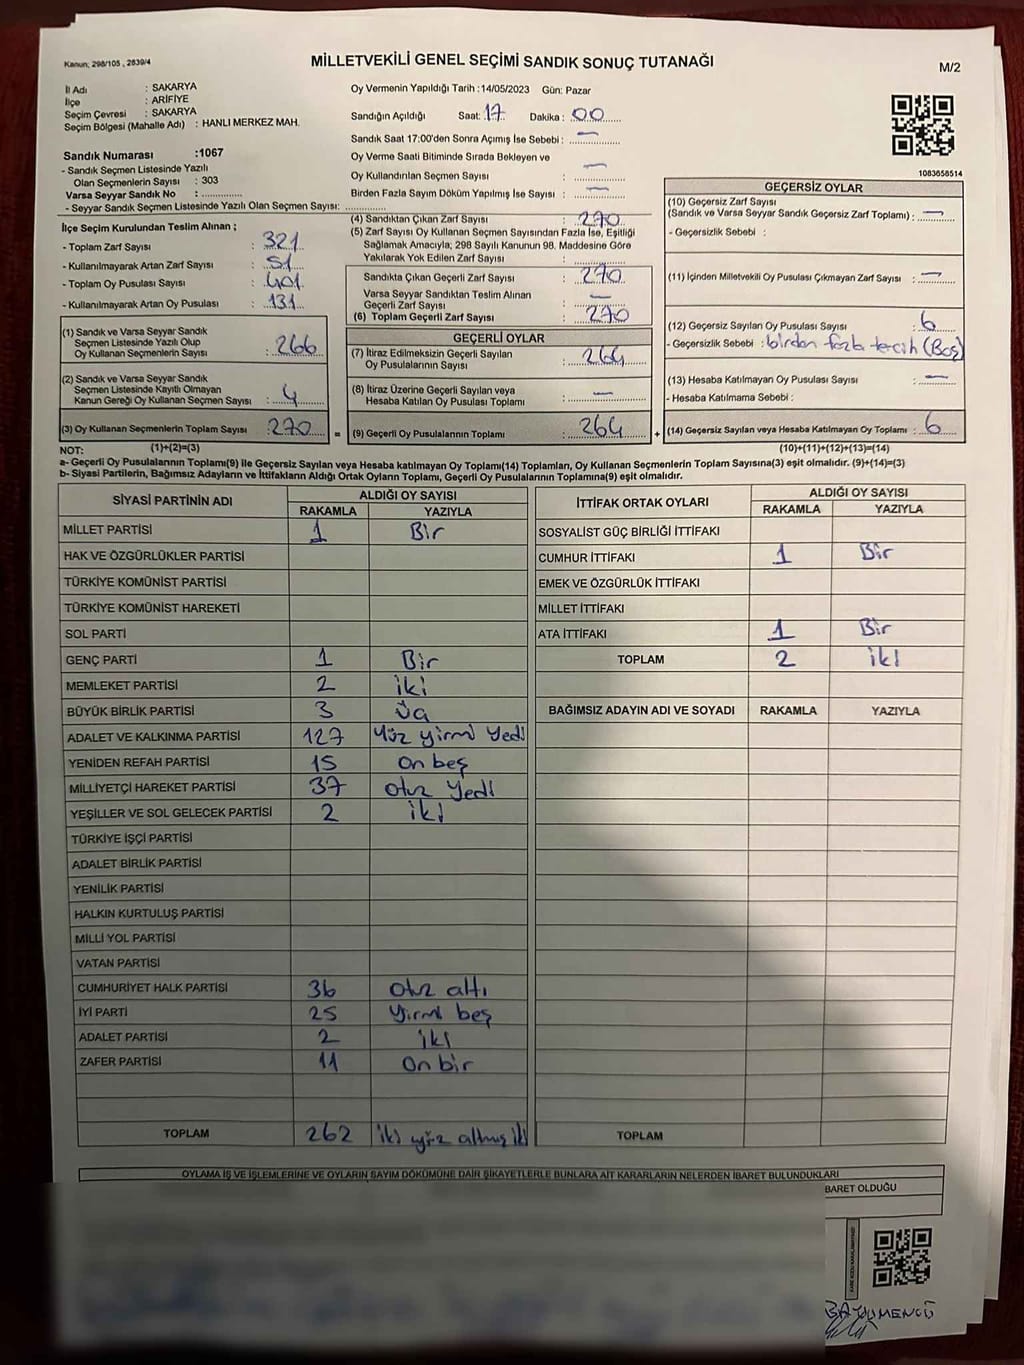 Kanun: 298/105 , 2839/4
MİLLETVEKİLİ GENEL SEÇİMİ SANDIK SONUÇ TUTANAĞI
M/2
İl Adı : SAKARYA
İlçe : ARİFİYE
Seçim Çevresi : SAKARYA
Seçim Bölgesi (Mahalle Adı) : HANLI MERKEZ MAH.
Sandık Numarası :1067
- Sandık Seçmen Listesinde Yazılı
Olan Seçmenlerin Sayısı : 303
Varsa Seyyar Sandık No : ............
- Seyyar Sandık Seçmen Listesinde Yazılı Olan Seçmen Sayısı: ............
Oy Vermenin Yapıldığı Tarih :14/05/2023 Gün: Pazar
Sandığın Açıldığı Saat: 17 Dakika : 00
Sandık Saat 17:00'den Sonra Açımış İse Sebebi : —
Oy Verme Saati Bitiminde Sırada Bekleyen ve
Oy Kullandırılan Seçmen Sayısı : —
Birden Fazla Sayım Döküm Yapılmış İse Sayısı : —
1083658514
İlçe Seçim Kurulundan Teslim Alınan ;
- Toplam Zarf Sayısı : 321
- Kullanılmayarak Artan Zarf Sayısı : 51
- Toplam Oy Pusulası Sayısı : 401
- Kullanılmayarak Artan Oy Pusulası : 131
(1) Sandık ve Varsa Seyyar Sandık
Seçmen Listesinde Yazılı Olup
Oy Kullanan Seçmenlerin Sayısı : 266
(2) Sandık ve Varsa Seyyar Sandık
Seçmen Listesinde Kayıtlı Olmayan
Kanun Gereği Oy Kullanan Seçmen Sayısı : 4
(3) Oy Kullanan Seçmenlerin Toplam Sayısı : 270
(4) Sandıktan Çıkan Zarf Sayısı : 270
(5) Zarf Sayısı Oy Kullanan Seçmen Sayısından Fazla İse, Eşitliği
Sağlamak Amacıyla; 298 Sayılı Kanunun 98. Maddesine Göre
Yakılarak Yok Edilen Zarf Sayısı : ............
Sandıkta Çıkan Geçerli Zarf Sayısı : 270
Varsa Seyyar Sandıktan Teslim Alınan
Geçerli Zarf Sayısı : —
(6) Toplam Geçerli Zarf Sayısı : 270
GEÇERLİ OYLAR
(7) İtiraz Edilmeksizin Geçerli Sayılan
Oy Pusulalarının Sayısı : 264
(8) İtiraz Üzerine Geçerli Sayılan veya
Hesaba Katılan Oy Pusulası Toplamı : —
= (9) Geçerli Oy Pusulalarının Toplamı : 264
GEÇERSİZ OYLAR
(10) Geçersiz Zarf Sayısı
(Sandık ve Varsa Seyyar Sandık Geçersiz Zarf Toplamı) : —
- Geçersizlik Sebebi :
(11) İçinden Milletvekili Oy Pusulası Çıkmayan Zarf Sayısı : —
(12) Geçersiz Sayılan Oy Pusulası Sayısı : 6
- Geçersizlik Sebebi : birden fazla tercih (Boş)
(13) Hesaba Katılmayan Oy Pusulası Sayısı : —
- Hesaba Katılmama Sebebi :
+ (14) Geçersiz Sayılan veya Hesaba Katılmayan Oy Toplamı : 6
NOT: (1)+(2)=(3) (10)+(11)+(12)+(13)=(14)
a- Geçerli Oy Pusulalarının Toplamı(9) ile Geçersiz Sayılan veya Hesaba katılmayan Oy Toplamı(14) Toplamları, Oy Kullanan Seçmenlerin Toplam Sayısına(3) eşit olmalıdır. (9)+(14)=(3)
b- Siyasi Partilerin, Bağımsız Adayların ve İttifakların Aldığı Ortak Oyların Toplamı, Geçerli Oy Pusulalarının Toplamına(9) eşit olmalıdır.
SİYASİ PARTİNİN ADI ALDIĞI OY SAYISI
RAKAMLA YAZIYLA
MİLLET PARTİSİ 1 Bir
HAK VE ÖZGÜRLÜKLER PARTİSİ
TÜRKİYE KOMÜNİST PARTİSİ
TÜRKİYE KOMÜNİST HAREKETİ
SOL PARTİ
GENÇ PARTİ 1 Bir
MEMLEKET PARTİSİ 2 iki
BÜYÜK BİRLİK PARTİSİ 3 üç
ADALET VE KALKINMA PARTİSİ 127 Yüz yirmi yedi
YENİDEN REFAH PARTİSİ 15 On beş
MİLLİYETÇİ HAREKET PARTİSİ 37 otuz yedi
YEŞİLLER VE SOL GELECEK PARTİSİ 2 iki
TÜRKİYE İŞÇİ PARTİSİ
ADALET BİRLİK PARTİSİ
YENİLİK PARTİSİ
HALKIN KURTULUŞ PARTİSİ
MİLLİ YOL PARTİSİ
VATAN PARTİSİ
CUMHURİYET HALK PARTİSİ 36 otuz altı
İYİ PARTİ 25 yirmi beş
ADALET PARTİSİ 2 iki
ZAFER PARTİSİ 11 on bir
TOPLAM 262 iki yüz altmış iki
İTTİFAK ORTAK OYLARI ALDIĞI OY SAYISI
RAKAMLA YAZIYLA
SOSYALİST GÜÇ BİRLİĞİ İTTİFAKI
CUMHUR İTTİFAKI 1 Bir
EMEK VE ÖZGÜRLÜK İTTİFAKI
MİLLET İTTİFAKI
ATA İTTİFAKI 1 Bir
TOPLAM 2 iki
BAĞIMSIZ ADAYIN ADI VE SOYADI RAKAMLA YAZIYLA
TOPLAM
OYLAMA İŞ VE İŞLEMLERİNE VE OYLARIN SAYIM DÖKÜMÜNE DAİR ŞİKAYETLERLE BUNLARA AİT KARARLARIN NELERDEN İBARET BULUNDUKLARI
BARET OLDUĞU